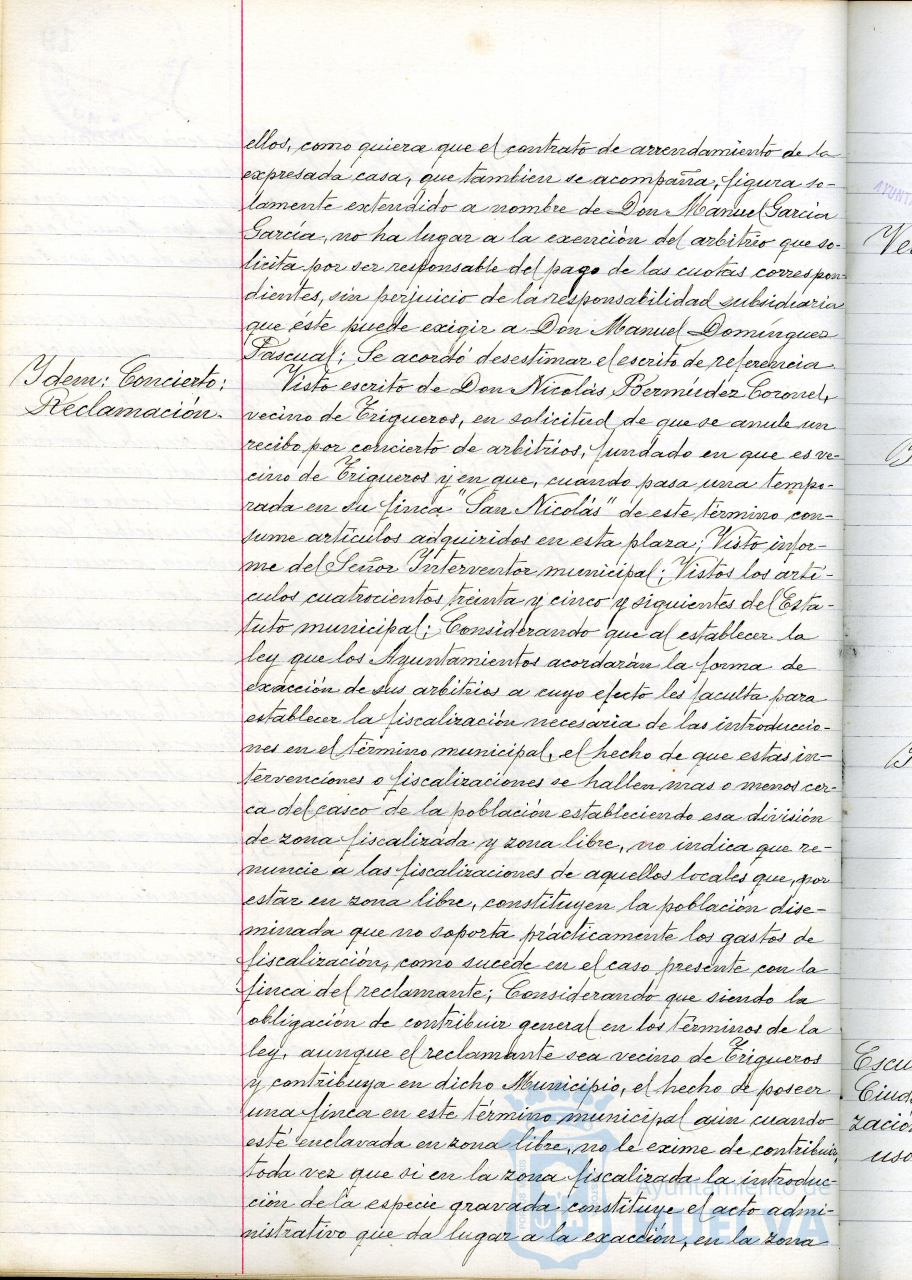 ellos, como quiera que el contrato de arrendamiento de la
expresada casa, que tambien se acompaña, figura so-
lamente extendido a nombre de Don Manuel García
García, no ha lugar a la exención del arbitrio que so-
licita por ser responsable del pago de las cuotas correspon-
dientes, sin perjuicio de la responsabilidad subsidiaria
que éste puede exigir a Don Manuel Domínguez
Pascual; Se acordó desestimar el escrito de referencia
Ydem: Concierto:
Reclamación.
Visto escrito de Don Nicolás Bermúdez Coronel,
vecino de Trigueros, en solicitud de que se anule un
recibo por concierto de arbitrios, fundado en que es ve-
cino de Trigueros y en que, cuando pasa una tempo-
rada en su finca "San Nicolás" de este término con-
sume artículos adquiridos en esta plaza; Visto infor-
me del Señor Interventor municipal; Vistos los artí-
culos cuatrocientos treinta y cinco y siguientes del Esta-
tuto municipal; Considerando que al establecer la
ley que los Ayuntamientos acordarán la forma de
exacción de sus arbitrios a cuyo efecto les faculta para
establecer la fiscalización necesaria de las introduccio-
nes en el término municipal, el hecho de que estas in-
tervenciones o fiscalizaciones se hallen mas o menos cer-
ca del casco de la población estableciendo esa división
de zona fiscalizada y zona libre, no indica que re-
nuncie a las fiscalizaciones de aquellos locales que, por
estar en zona libre, constituyen la población dise-
minada que no soporta prácticamente los gastos de
fiscalización, como sucede en el caso presente con la
finca del reclamante; Considerando que siendo la
obligación de contribuir general en los términos de la
ley, aunque el reclamante sea vecino de Trigueros
y contribuya en dicho Municipio, el hecho de poseer
una finca en este término municipal aún cuando
esté enclavada en zona libre, no le exime de contribuir,
toda vez que si en la zona fiscalizada la introduc-
ción de la especie gravada constituye el acto admi-
nistrativo que da lugar a la exacción, en la zona
Ayuntamiento de
HUELVA
AYUNTA
Ve
Escu
Ciud
zación
uso